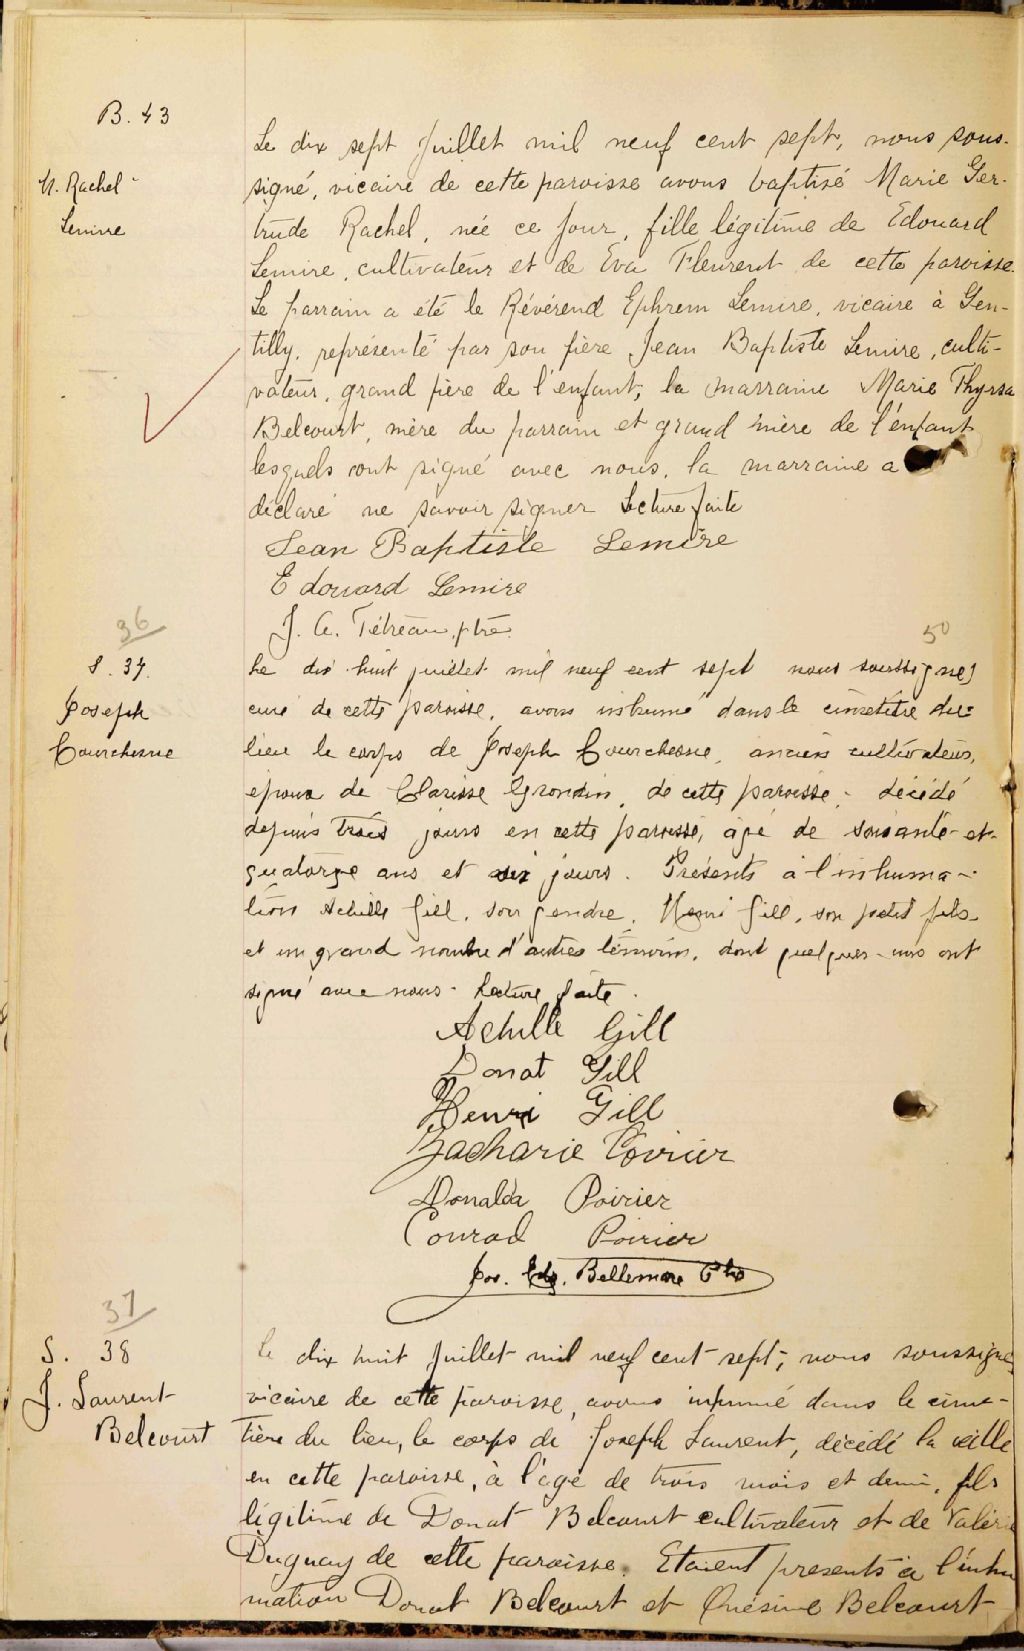 B. 43
M. Rachel
Lemire
Le dix sept Juillet mil neuf cent sept, nous sous-
signé, vicaire de cette paroisse avons baptisé Marie Ger-
trude Rachel, née ce jour, fille légitime de Edouard
Lemire, cultivateur et de Eva Fleurent de cette paroisse.
Le parrain a été le Révérend Ephrem Lemire, vicaire à Gen-
tilly, représenté par son père Jean Baptiste Lemire, culti-
vateur, grand père de l'enfant, la marraine Marie Thyrsa
Belcourt, mère du parrain et grand mère de l'enfant
lesquels ont signé avec nous, la marraine a
déclaré ne savoir signer Lecture faite
Jean Baptiste Lemire
Edouard Lemire
J. A. Tétreau, ptre.
36
S. 37.
Joseph
Courchesne
50
Le dix huit juillet mil neuf cent sept nous soussigné,
curé de cette paroisse, avons inhumé dans le cimetière du
lieu le corps de Joseph Courchesne, ancien cultivateur,
époux de Clarisse Grondin, de cette paroisse, décédé
depuis trois jours en cette paroisse, âgé de soixante-et-
quatorze ans et six jours. Présents à l'inhuma-
tion Achille Gill, son gendre, Henri Gill, son petit fils
et un grand nombre d'autres témoins, dont quelques-uns ont
signé avec nous. Lecture faite.
Achille Gill
Donat Gill
Henri Gill
Zacharie Poirier
Donalda Poirier
Conrad Poirier
Jos. Edg. Bellemare Ptre
37
S. 38
J. Laurent
Belcourt
Le dix huit Juillet mil neuf cent sept, nous soussigné,
vicaire de cette paroisse, avons inhumé dans le cime-
tière du lieu, le corps de Joseph Laurent, décédé la veille
en cette paroisse, à l'âge de trois mois et demi, fils
légitime de Donat Belcourt cultivateur et de Valérie
Duguay de cette paroisse. Etaient presents à l'inhu
mation Donat Belcourt et Onésime Belcourt